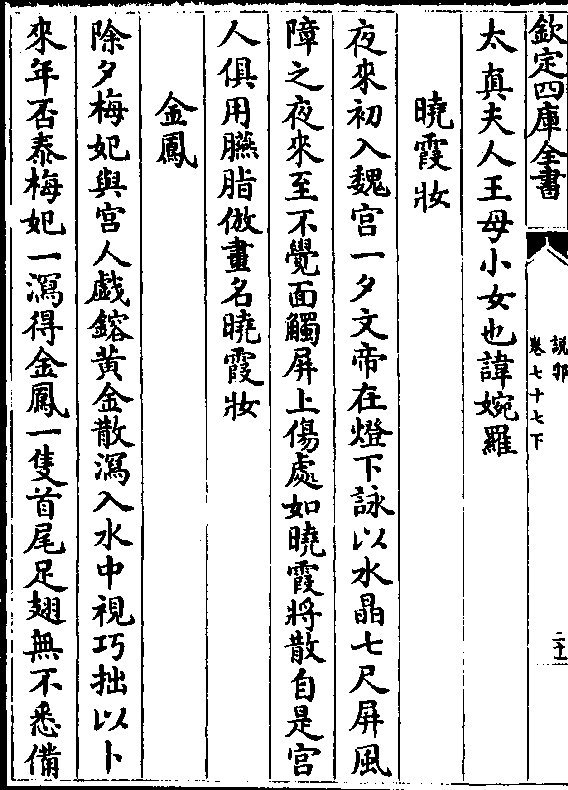 欽定四庫全書
說郛
卷七十七下
二十
太真夫人王母小女也諱婉羅
曉霞妝
夜來初入魏宮一夕文帝在燈下詠以水晶七尺屏風
障之夜來至不覺面觸屏上傷處如曉霞將散自是宮
人俱用臙脂倣畫名曉霞妝
金鳳
除夕梅妃與宮人戲鎔黃金散瀉入水中視巧拙以卜
來年否泰梅妃一瀉得金鳳一隻首尾足翅無不悉備